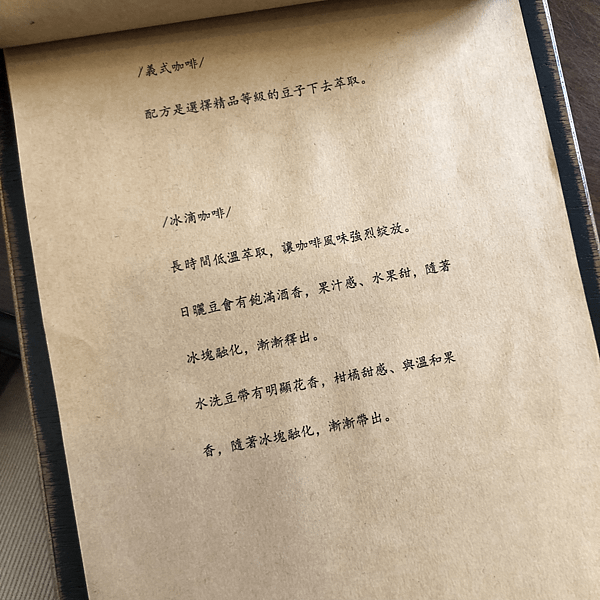 /義式咖啡/
配方是選擇精品等級的豆子下去萃取。
/冰滴咖啡/
長時間低溫萃取，讓咖啡風味強烈綻放。
日曬豆會有飽滿酒香，果汁感、水果甜，隨著
冰塊融化，漸漸釋出。
水洗豆帶有明顯花香，柑橘甜感、與溫和果
香，隨著冰塊融化，漸漸帶出。